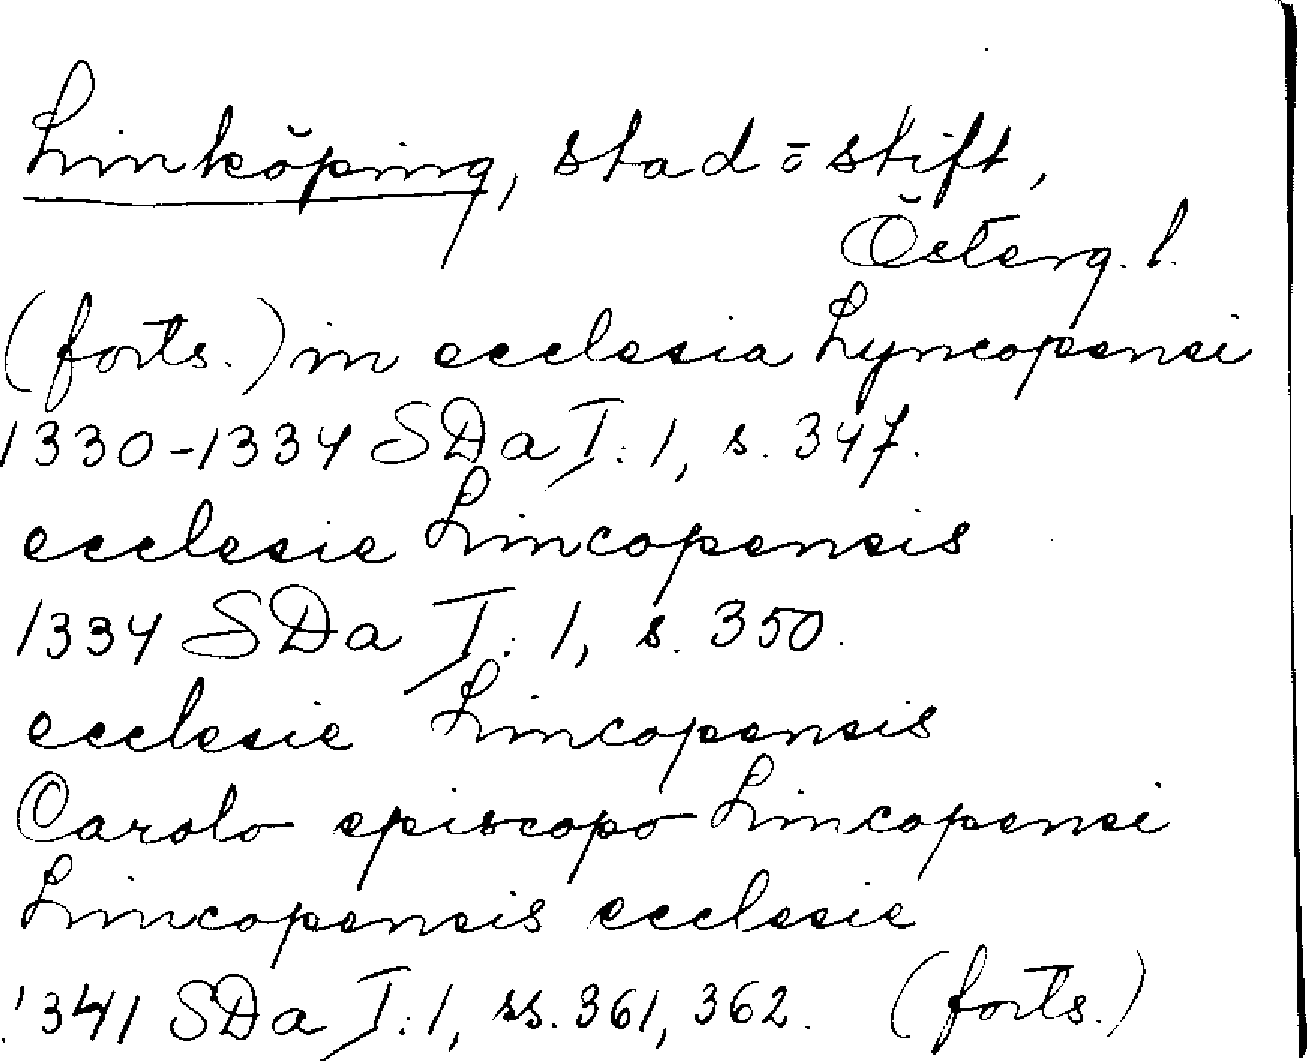 Linköping, stad o stift,
Österg. l.
(forts.) in ecclesia Lyncopensi
1330-1334 SDa I:1, s. 347.
ecclesie Lincopensis
1334 SDa I:1, s. 350.
ecclesie Lincopensis
Carolo episcopo Lincopensi
Lincopensis ecclesie
1341 SDa I:1, ss. 361, 362. (forts.)